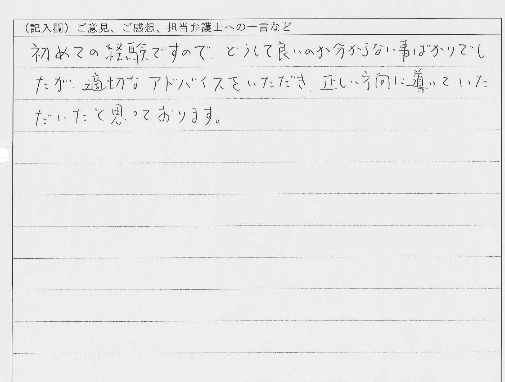 （記入欄）ご意見、ご感想、担当弁護士への一言など
初めての経験ですので、どうして良いのか分からない事ばかりでし
たが、適切なアドバイスをいただき、正しい方向に導いていた
だいたと思っております。